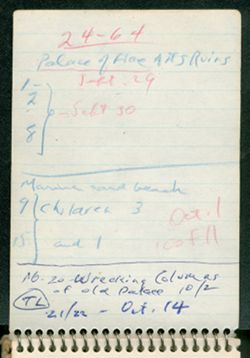 24-64
Palace of Fine Arts Ruins
1- Sept. 29
2
- Sept 30
8
Marine sand beach
9 Children 3 Oct. 1
15 and 1
16-20-Wrecking Columns
of old Palace 10/2
TL
21/22 - Oct. 14